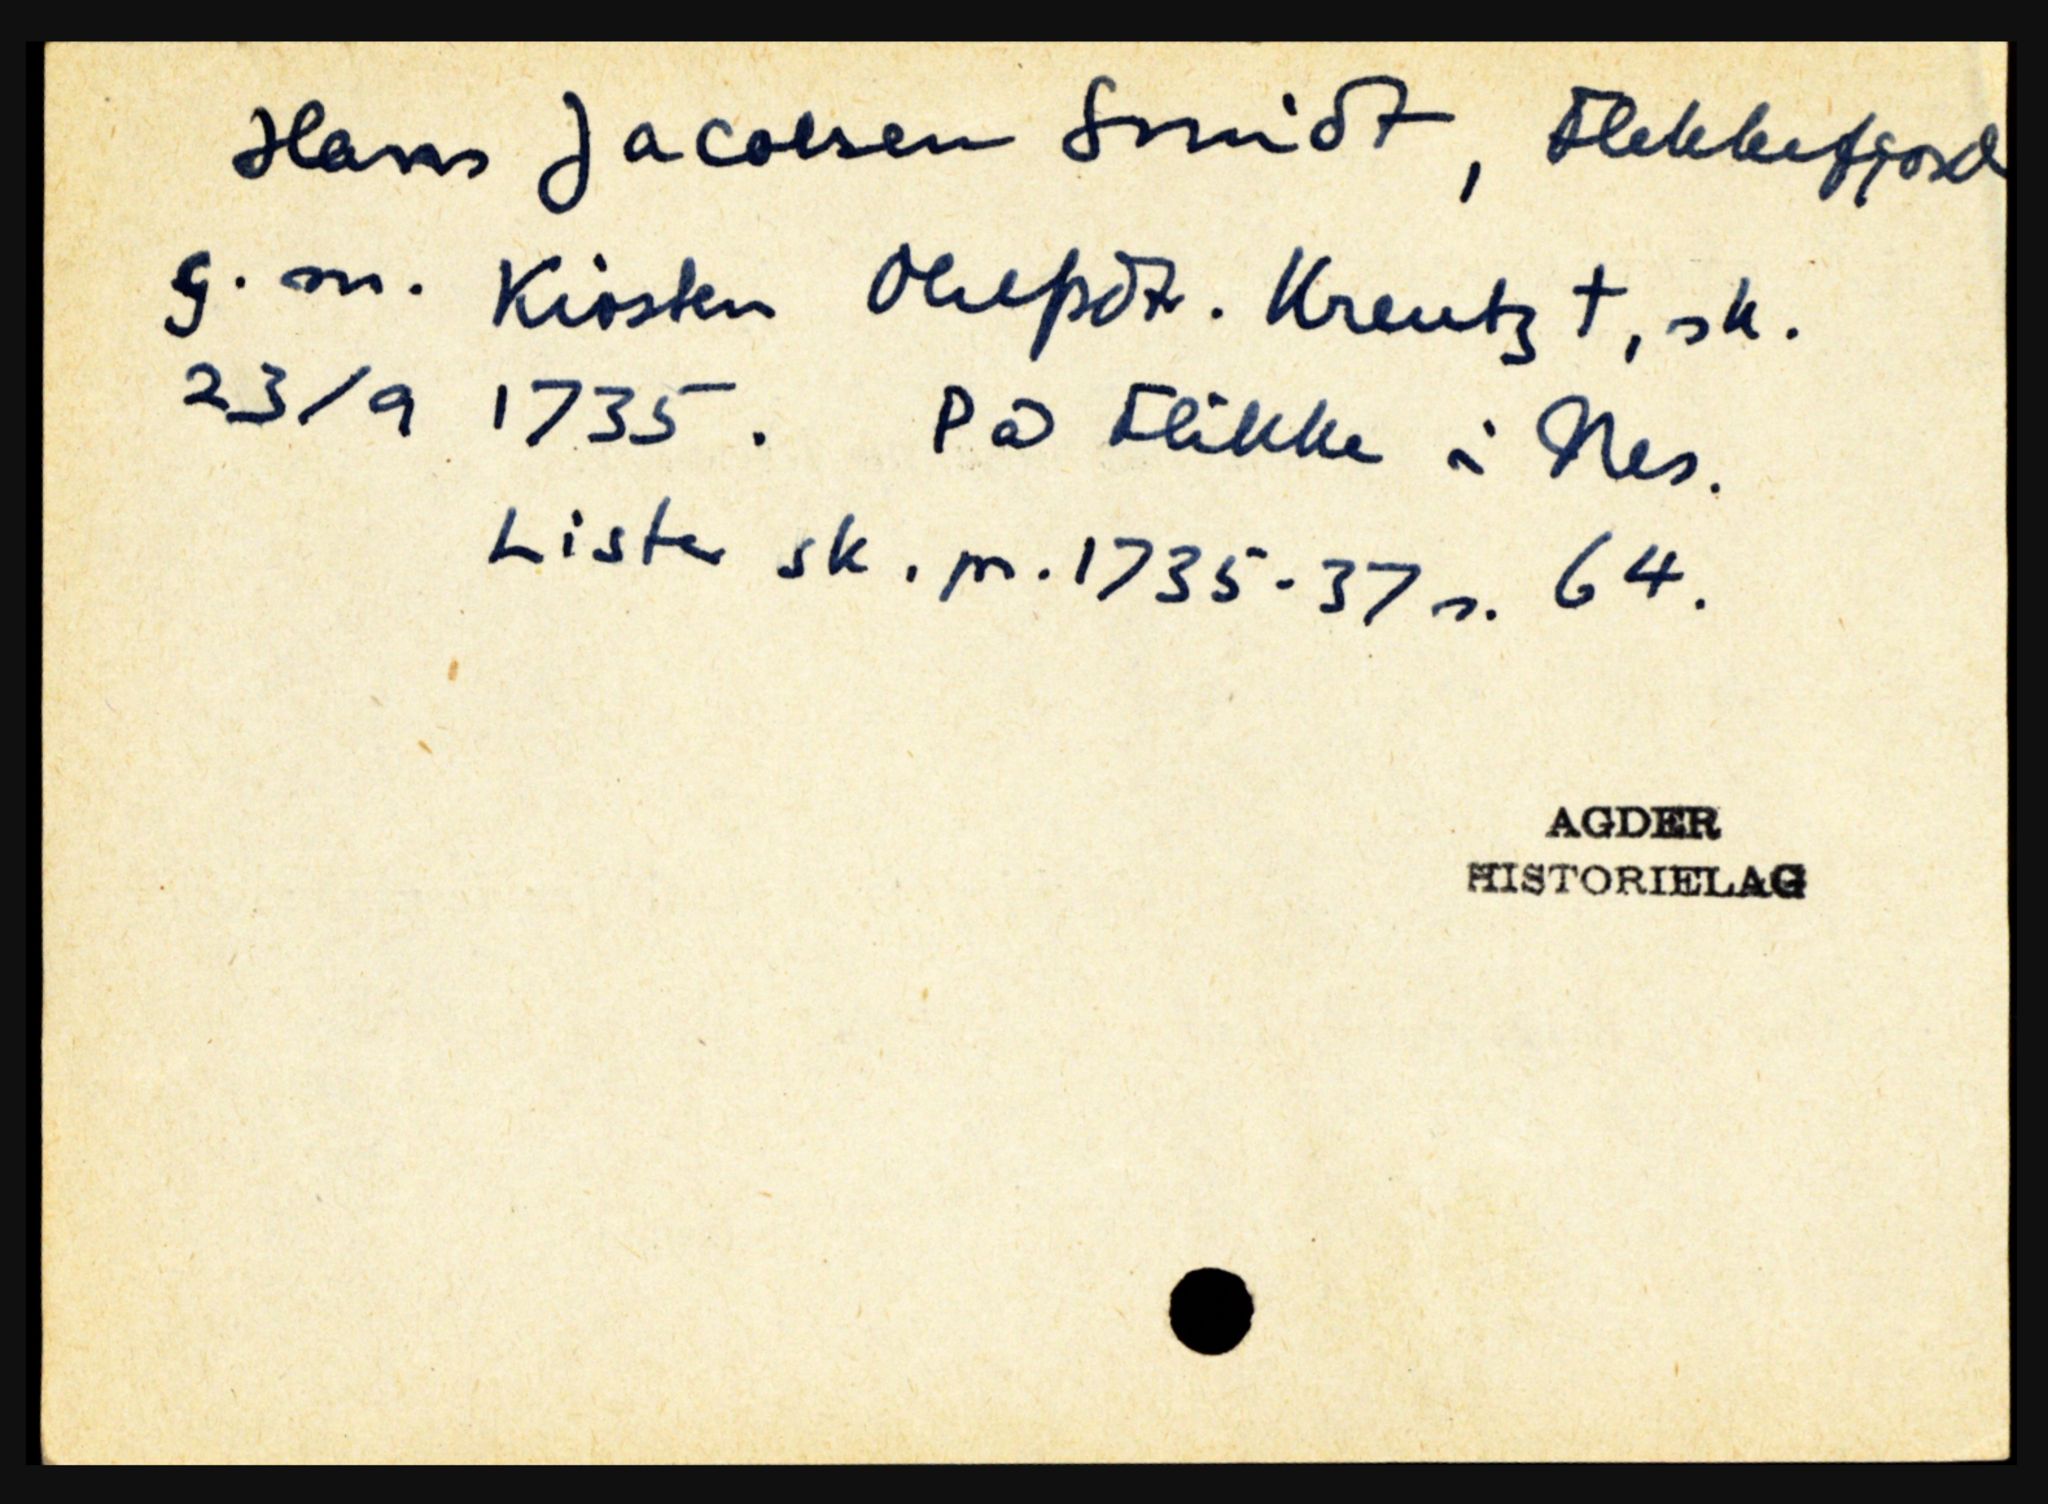 Hans Jacobsen Smidt, Flekkefjord
g. m. Kirsten Olufsdtr. Kreutz †, sk.
23/9 1735. På Flikke i Nes.
Lister sk. pr. 1735-37 s. 64.
AGDER
HISTORIELAG